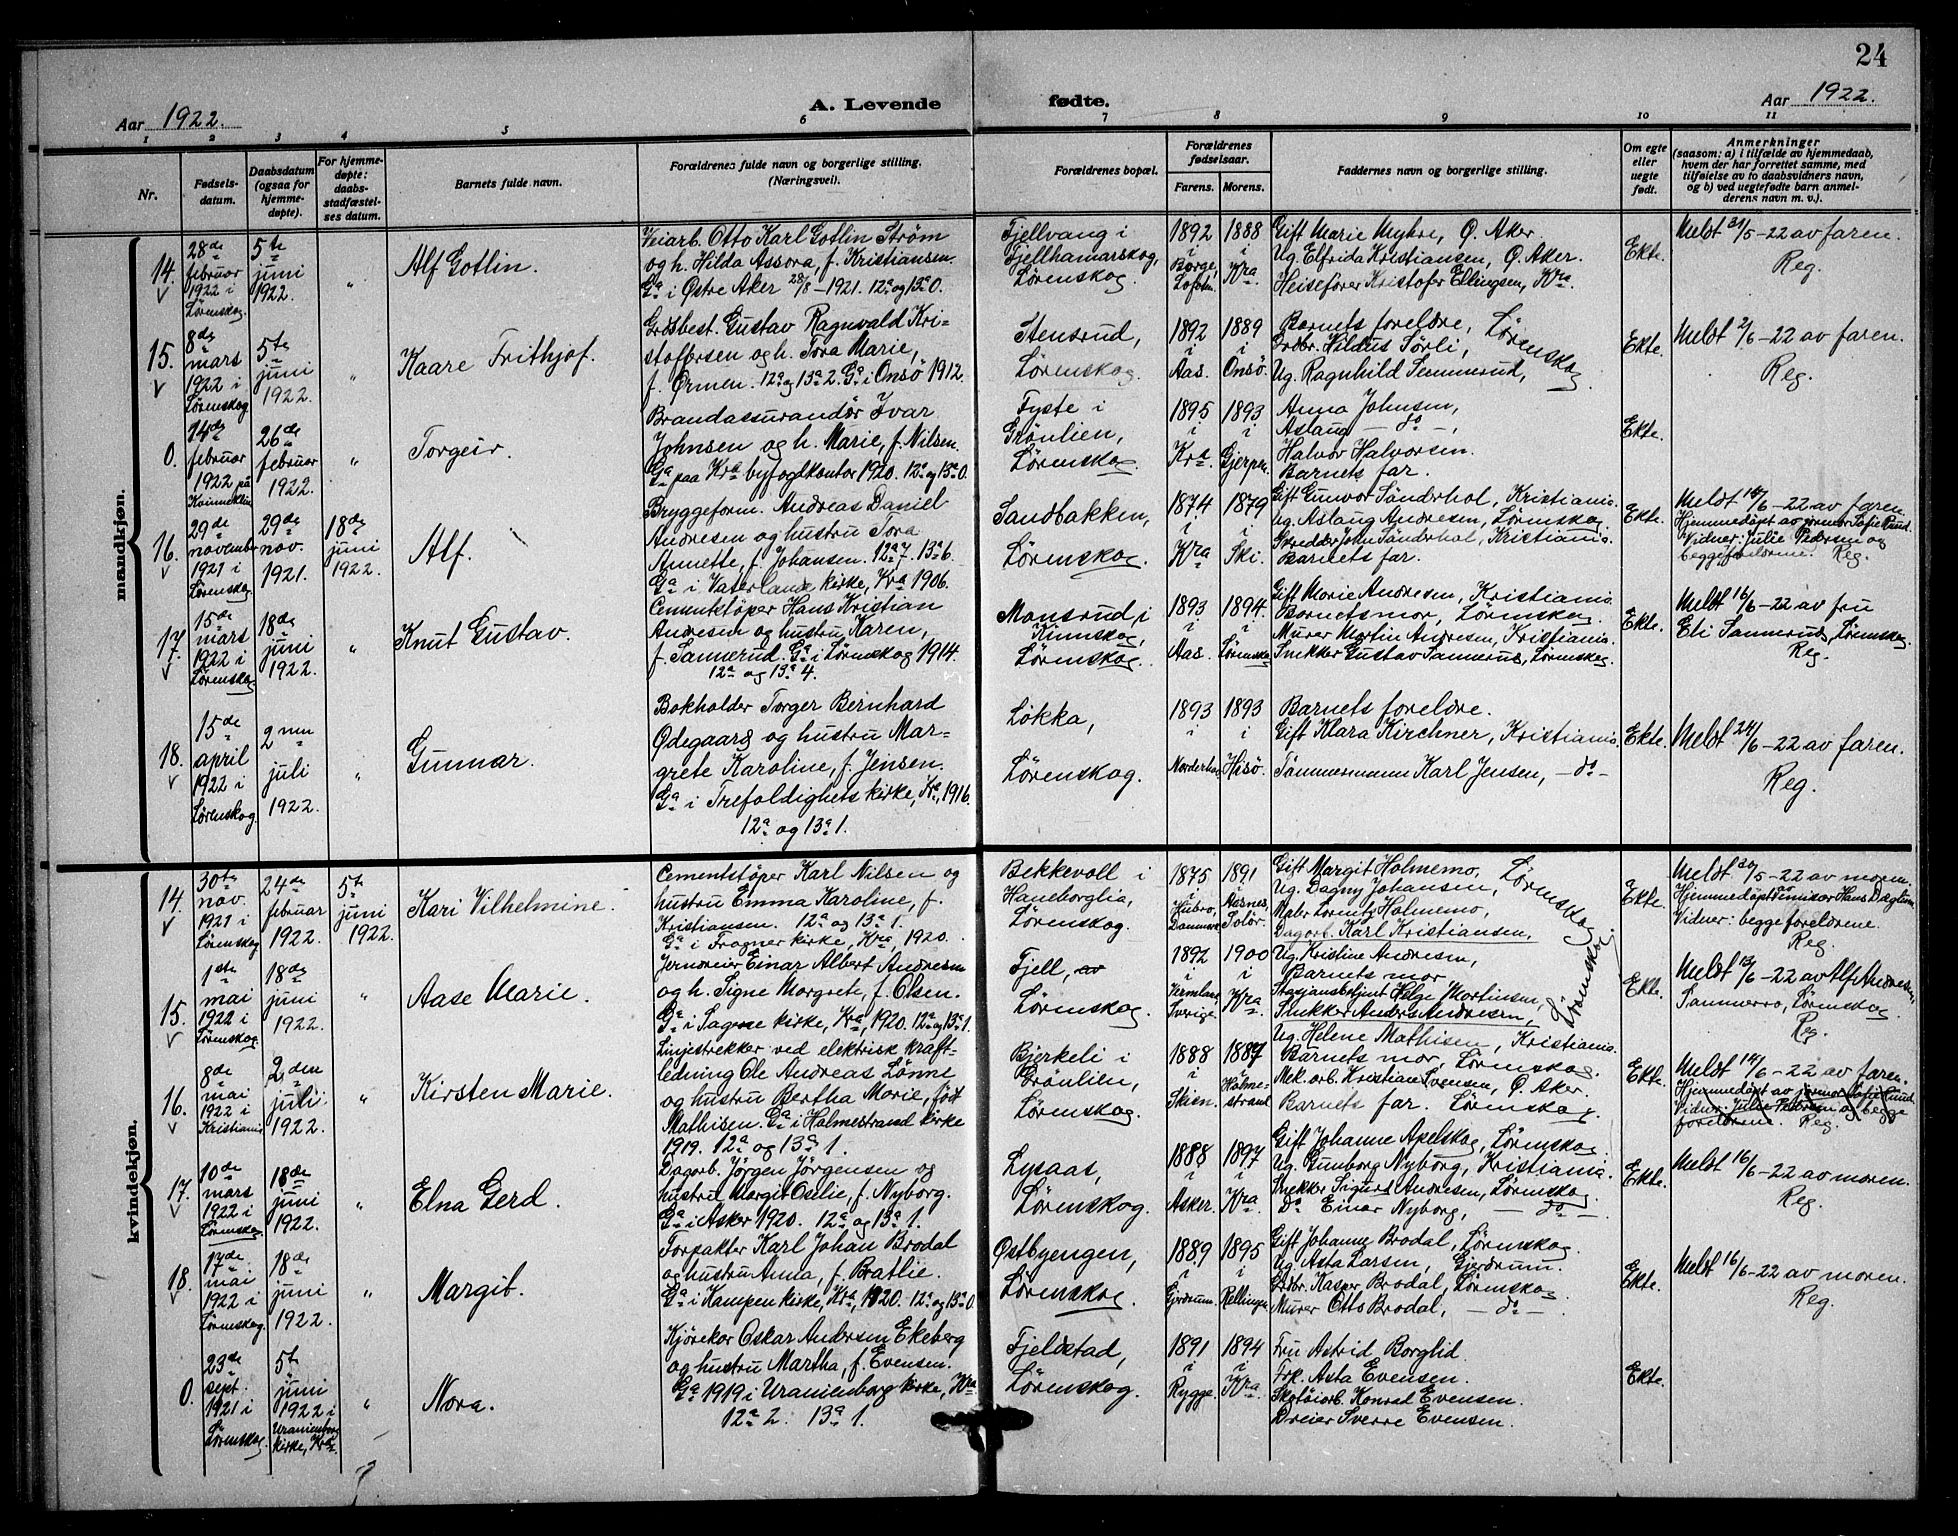 24
Aar 1922.
A. Levende fødte.
Aar 1922.
1 2 3 4 5 6 7 8 9 10 11
Nr.
Fødsels-
datum.
Daabsdatum
(ogsaa for
hjemme-
døpte).
For hjemme-
døpte:
daabs-
stadfæstel-
ses datum.
Barnets fulde navn.
Forældrenes fulde navn og borgerlige stilling.
(Næringsvei).
Forældrenes bopæl.
Forældrenes
fødselsaar.
Farens. Morens.
Faddernes navn og borgerlige stilling.
Om egte
eller
uegte
født.
Anmerkninger
(saasom: a) i tilfælde av hjemmedaab,
hvem der har forrettet samme, med
tilføielse av to daabsvidners navn,
og b) ved uegtefødte barn anmel-
derens navn m. v.).
mandkjøn.
14.
28de
februar
1922 i
Lørenskog.
5te
juni
1922.
"
Alf Gotlin.
Veiarb. Otto Karl Gotlin Strøm
og h. Hilda Assora, f. Kristiansen.
Ga i Østre Aker 28/8-1921. 12a og 13a 0.
Fjellvang i
Fjellhamarskog,
Lørenskog.
1892
i
Borge,
Lofoten.
1888
i
Kra.
Gift Marie Myhre, Ø. Aker.
Ug. Elfrida Kristiansen, Ø. Aker.
Heisefører Kristofer Ellingsen, Kra.
Ekte.
Meldt 31/5-22 av faren.
Reg.
15.
8de
mars
1922 i
Lørenskog
5te
juni
1922.
"
Kaare Frithjof.
Grosbest. Gustav Ragnvald Kri-
stoffersen og h. Tora Marie,
f. Ormen. 12a og 13a 2. Ga i Onsö 1912.
Stensrud,
Lørenskog.
1892
i
Aas.
1889
i
Onsö.
Barnets foreldre,
Grdbr. Hildus Sørli,
Ug. Ragnhild Semmerud,
Lørenskog
Ekte.
Meldt 2/6-22 av faren.
Reg.
0.
14de
februar
1922 på
Kvinneklin.
26de
februar
1922.
"
Torgeir.
Brandassurandör Ivar
Johnsen og h. Marie, f. Nilsen.
Ga paa Kra byfogdkontor 1920. 12a og 13a 0.
Fyste i
Grönlien,
Lørenskog.
1895
i
Kra.
1893
i
Gjerpen.
Anna Johnsen,
Aslaug -do-,
Halvor Halvorsen.
Barnets far.
Ekte.
16.
29de
november
1921 i
Lørenskog.
29de
nov.
1921.
18de
juni
1922.
Alf.
Bryggeform. Andreas Daniel
Andresen og hustru Tora
Annette, f. Johansen. 12a 7. 13a 6.
Ga i Vaterlands kirke, Kra 1906.
Sandbakken,
Lørenskog.
1874
i
Kra
1879
i
Ski.
Gift Gunvor Sönderhol, Kristiania.
Ug. Aslaug Andresen, Lørenskog.
Skredder John Sönderhol, Kristiania.
Barnets far.
Ekte.
Meldt 14/6-22 av faren.
Hjemmedöpt av jormor Sofie Ruud.
Vidner: Julie Pedersen og
begge foreldrene. Reg.
17.
15de
mars
1922 i
Lørenskog
18de
juni
1922.
"
Knut Gustav.
Cementstöper Hans Kristian
Andresen og hustru Karen,
f. Sannerud. Ga i Lørenskog 1914.
12a og 13a 4.
Monsrud i
Finnskog,
Lørenskog.
1893
i
Aas.
1894.
i
Lørenskog
Gift Marie Andresen, Kristiania.
Barnets mor, Lørenskog.
Murer Martin Andresen, Kristiania.
Snekker Gustav Sannerud, Lørenskog.
Ekte.
Meldt 16/6-22 av fru
Eli Sannerud, Lørenskog.
Reg.
18.
15de
april
1922 i
Lørenskog.
2nen
juli
1922.
"
Gunnar.
Bokholder Torger Bernhard
Ødegaard og hustru Mar-
grete Karoline, f. Jensen.
Ga i Trefoldighets kirke, Kra, 1916.
12a og 13a 1.
Løkka,
Lørenskog.
1893
i
Norderhov
1893
i
Hisö.
Barnets foreldre.
Gift Klara Kirchner, Kristiania.
Tömmermann Karl Jensen, -do-
Ekte.
Meldt 24/6-22 av faren.
Reg.
kvindekjøn.
14.
30te
nov.
1921 i
Lørenskog
24de
februar
1922.
5te
juni
1922.
Kari Vilhelmine.
Cementstøper Karl Nilsen og
hustru Emma Karoline, f.
Kristiansen. 12a og 13a 1.
Ga i Frogner kirke, Kra, 1920.
Bekkevoll i
Haneborglia,
Lørenskog.
1875
i
Hubro,
Danmark
1891
i
Aasnes,
Solör.
Gift Margit Holmemo,
Ug. Dagny Johansen,
Maler Lorentz Holmemo,
Dagarb. Karl Kristiansen,
Lørenskog
Ekte.
Meldt 30/5-22 av moren.
Vidner: begge foreldrene.
Reg.
15.
1ste
mai
1922 i
Lørenskog.
18de
juni
1922.
"
Aase Marie.
Jerndreier Einar Albert Andresen
og h. Signe Margrete, f. Olsen.
Ga i Sagene kirke, Kra, 1920. 12a og 13a 1.
Fjell, av
Lørenskog.
1892
i
Vermland,
Sverige
1900
i
Kra.
Ug. Kristine Andresen,
Barnets mor
Stasjonsbetjent Helge Mortinsen,
Snekker Anders Andresen,
Lørenskog.
Ekte.
Meldt 13/6-22 av Alf Andresen,
Sannerro, Lørenskog.
Reg.
16.
8de
mai
1922 i
Kristiania
2den
juli
1922.
"
Kirsten Marie.
Linjestrekker ved elektrisk kraft-
ledning Ole Andreas Lønne
og hustru Bertha Marie, född
Mathisen. Ga i Holmestrand kirke
1919. 12a og 13a 1.
Bjerkeli i
Grönlien,
Lørenskog.
1888
i
Skien.
1887
i
Holme-
strand
Ug. Helene Mathisen, Kristiania.
Barnets mor, Lørenskog.
Mek. arb. Kristian Svensen, Ø. Aker.
Barnets far. Lørenskog.
Ekte.
Meldt 14/6-22 av faren.
Hjemmedöpt av jormor Sofie Ruud
Vidner: Julie Pedersen og begge
foreldrene. Reg.
17.
10de
mars
1922 i
Lørenskog.
18de
juni
1922.
"
Elna Gerd.
Dagarb. Jörgen Jörgensen og
hustru Margit Otilie, f. Nyborg.
Ga i Asker 1920. 12a og 13a 1.
Lysaas,
Lørenskog.
1888
i
Asker.
1897
i
Kra.
Gift Johanne Apelskog, Lørenskog.
Ug. Gunborg Nyborg, Kristiania.
Snekker Sigurd Andresen, Lørenskog.
Do Einar Nyborg, -do-
Ekte.
Meldt 16/6-22 av moren.
Reg.
18.
17de
mai
1922 i
Lørenskog.
18de
juni
1922.
"
Margit.
Forpakter Karl Johan Brodal
og hustru Anna, f. Bratlie.
Ga i Kampen kirke, Kra, 1920. 12a og 13a 0.
Østbyengen,
Lørenskog.
1889
i
Gjerdrum.
1895
i
Rellingen
Gift Johanne Brodal, Lørenskog.
Ug. Asta Larsen, Gjerdrum.
Grdbr. Kasper Brodal, Lørenskog
Murer Otto Brodal, -do-
Ekte.
Meldt 16/6-22 av moren.
Reg.
0.
23de
sept.
1921 i
Lørenskog.
5te
juni
1922 i
Uranienborg
kirke, Kra.
"
Nora.
Kjörekar Oskar Andersen Ekeberg
og hustru Martha, f. Evensen.
Ga 1919 i Uranienborg kirke, Kra
12a 2. 13a 1.
Fjeldstad,
Lørenskog.
1891
i
Rygge.
1894
i
Kra.
Fru Astrid Borglid.
Frk. Asta Evensen.
Skotöiarb. Konrad Evensen.
Dreier Sverre Evensen.
Ekte.